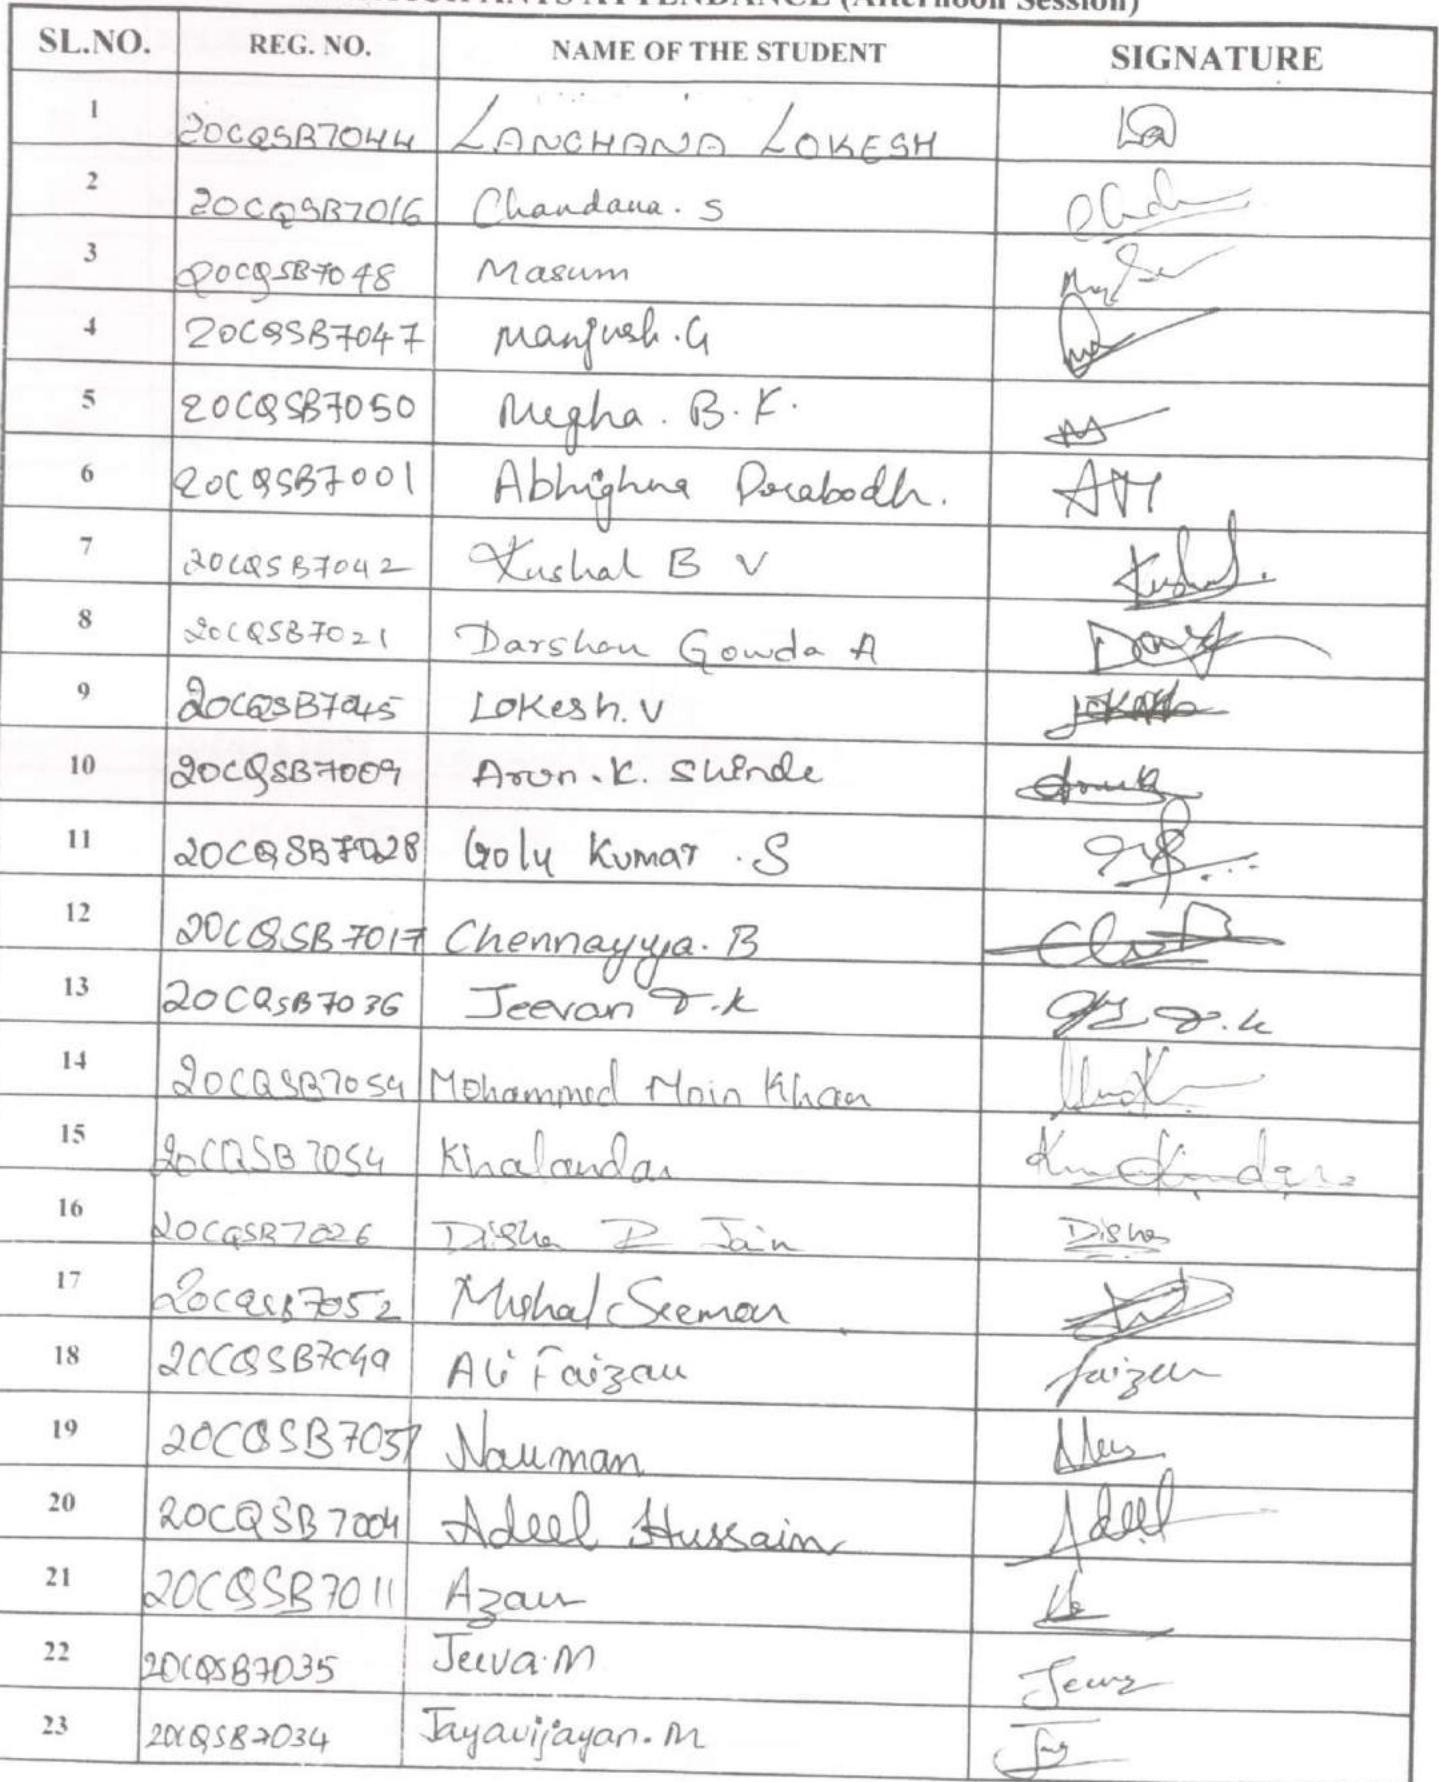 ATTENDANCE (Afternoon Session)
SL.NO. REG. NO. NAME OF THE STUDENT SIGNATURE
1 20CQSB7044 LANCHANA LOKESH
2 20CQSB7016 Chandana. S
3 20CQSB7048 Masum
4 20CQSB7047 Manjush.G
5 20CQSB7050 Megha. B.K.
6 20CQSB7001 Abhighna Prabodh.
7 20CQSB7042 Kushal B V Kushal.
8 20CQSB7021 Darshan Gowda A
9 20CQSB7045 Lokesh.V
10 20CQSB7009 Arun.K. Shinde
11 20CQSB7028 Golu Kumar .S
12 20CQSB7017 Chennayya. B
13 20CQSB7036 Jeevan T.K
14 20CQSB7054 Mohammed Moin Khan
15 20CQSB7054 Khalandar
16 20CQSB7026 Disha R Jain Disha
17 20CQSB7052 Mishal Seeman
18 20CQSB7049 Ali Faizan faizan
19 20CQSB7057 Nauman
20 20CQSB7004 Adeel Hussain Adeel
21 20CQSB7011 Azan
22 20CQSB7035 Jeeva.M
23 20CQSB7034 Jayavijayan.M